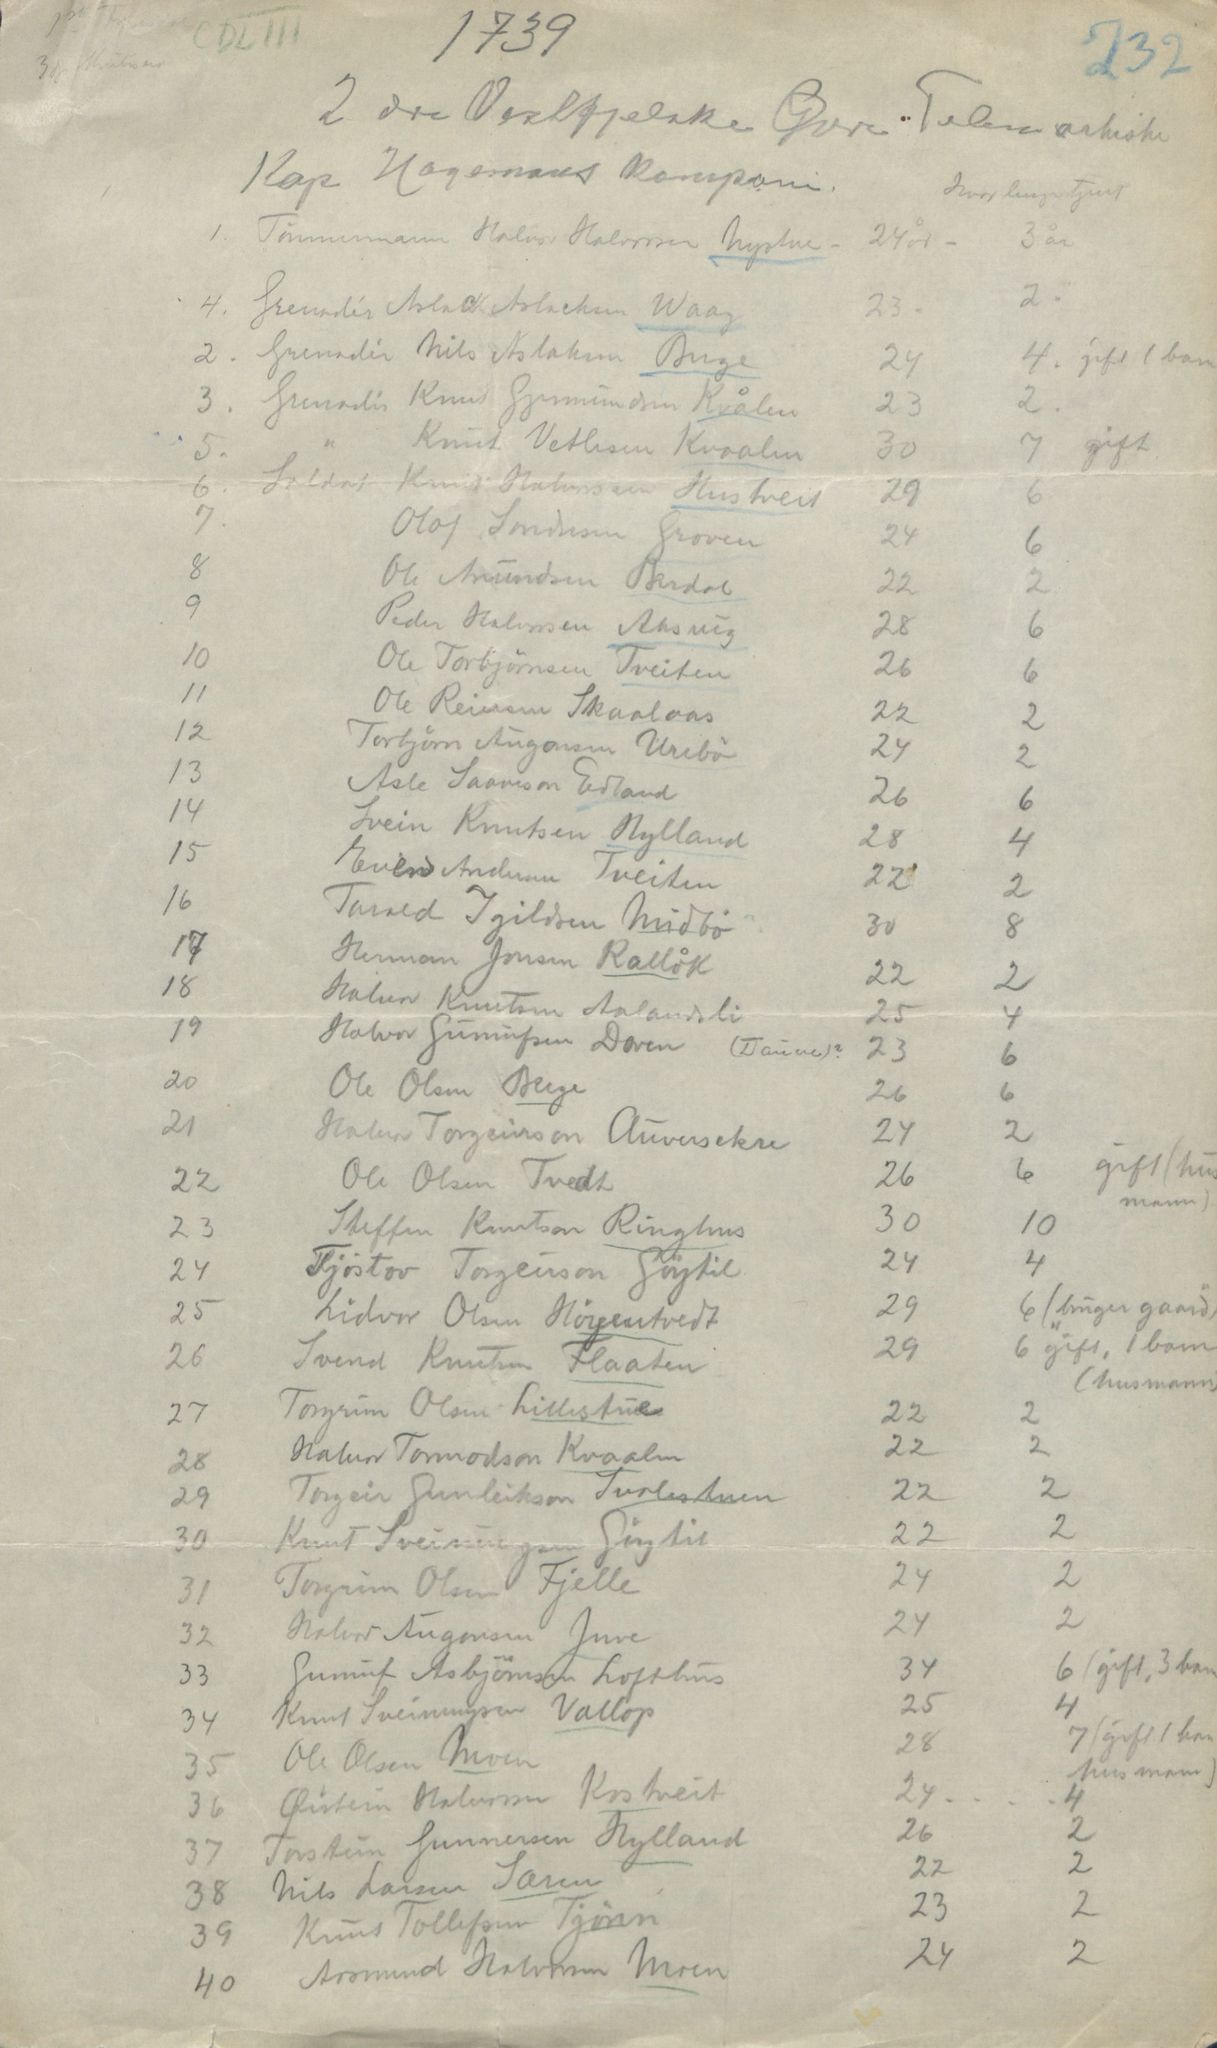 CDLIII
1739
232
2 dre Vestfjelske Øvre Telemarkiske
Kap Hagemans Kompani.
Hvor lenge tjent
1. Tömmermann Halvor Halvorsen Nystue - 24 år - 3 år
4. Grenadér Aslack Aslacksen Waag 23. 2.
2. Grenadér Nils Aslaksen Buge 24 4. gift 1 barn
3. Grenadér Knut Gjermundsen Kvålen 23 2.
5. " Knut Vetlesen Kvaalen 30 7 gift
6. Soldat Knut Halvorsen Hustveit 29 6
7. Olaf Sondresen Groven 24 6
8 Ole Amundsen Berdal 22 2
9 Peder Halvorsen Aasvig 28 6
10 Ole Torbjörnsen Tveiten 26 6
11 Ole Reiersen Skaalaas 22 2
12 Torbjörn Augonsen Uribö 24 2
13 Asle Saaveson Edland 26 6
14 Svein Knutsen Nylland 28 4
15 Evend Andersen Tveiten 22 2
16 Tarald Igildsen Midbö 30 8
17 Herman Jonsen Rallåk 22 2
18 Halvor Knutsen Aalandsli 25 4
19 Halvor Gunufsen Daven (Dauve)? 23 6
20 Ole Olsen Berge 26 6
21 Halvor Torgeirson Auversekre 24 2
22 Ole Olsen Tvedt 26 6 gift (hus
mann)
23 Steffen Knutson Ringhus 30 10
24 Tjöstov Torgeirson Göytil 24 4
25 Lidvor Olsen Höyentvedt 29 6 (bruger gaard)
26 Svend Knutsen Flaaten 29 6 gift, 1 barn
(husmann)
27 Torgrim Olsen Lillestue 22 2
28 Halvor Tormodson Kvaalen 22 2
29 Torgeir Gunleikson Svalestuen 22 2
30 Knut Sveinungsen Göytil 22 2
31 Torgrim Olsen Fjelle 24 2
32 Halvor Augonsen Juve 24 2
33 Gunuf Asbjörnsen Lofthus 34 6 (gift, 3 barn
34 Knut Sveinungsen Vallop 25 4
35 Ole Olsen Moen 28 7 (gift 1 barn
husmann)
36 Øistein Halvorsen Kostveit 24 . . . . 4
37 Torstein Gunnersen Nylland 26 2
38 Nils Larsen Særen 22 2
39 Knut Tollefsen Tjönn 23 2
40 Aasmund Halvorsen Moen 24 2